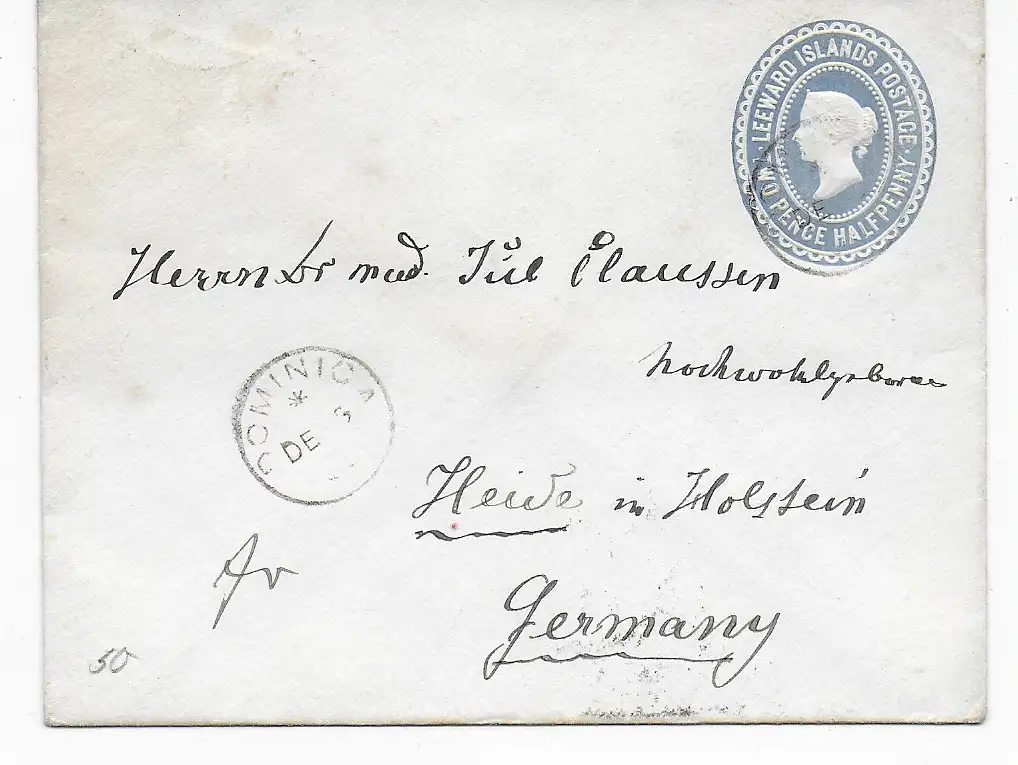 LEEWARD ISLANDS POSTAGE
TWO PENCE HALFPENNY
Herrn Dr med. Jul Claussen
Hochwohlgeboren
DOMINICA
*
DE 3
Heide in Holstein
Germany
50